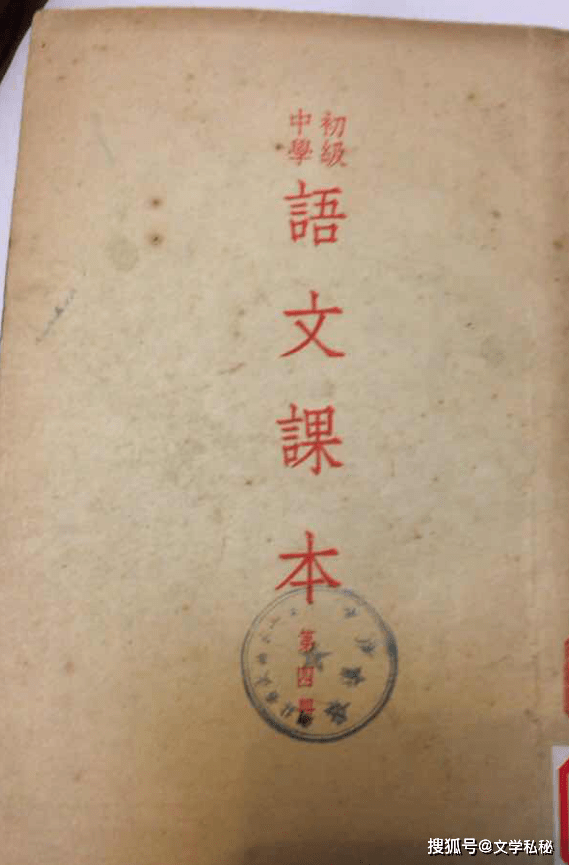 初級
中學
語文課本
第四冊
搜狐号@文学私秘